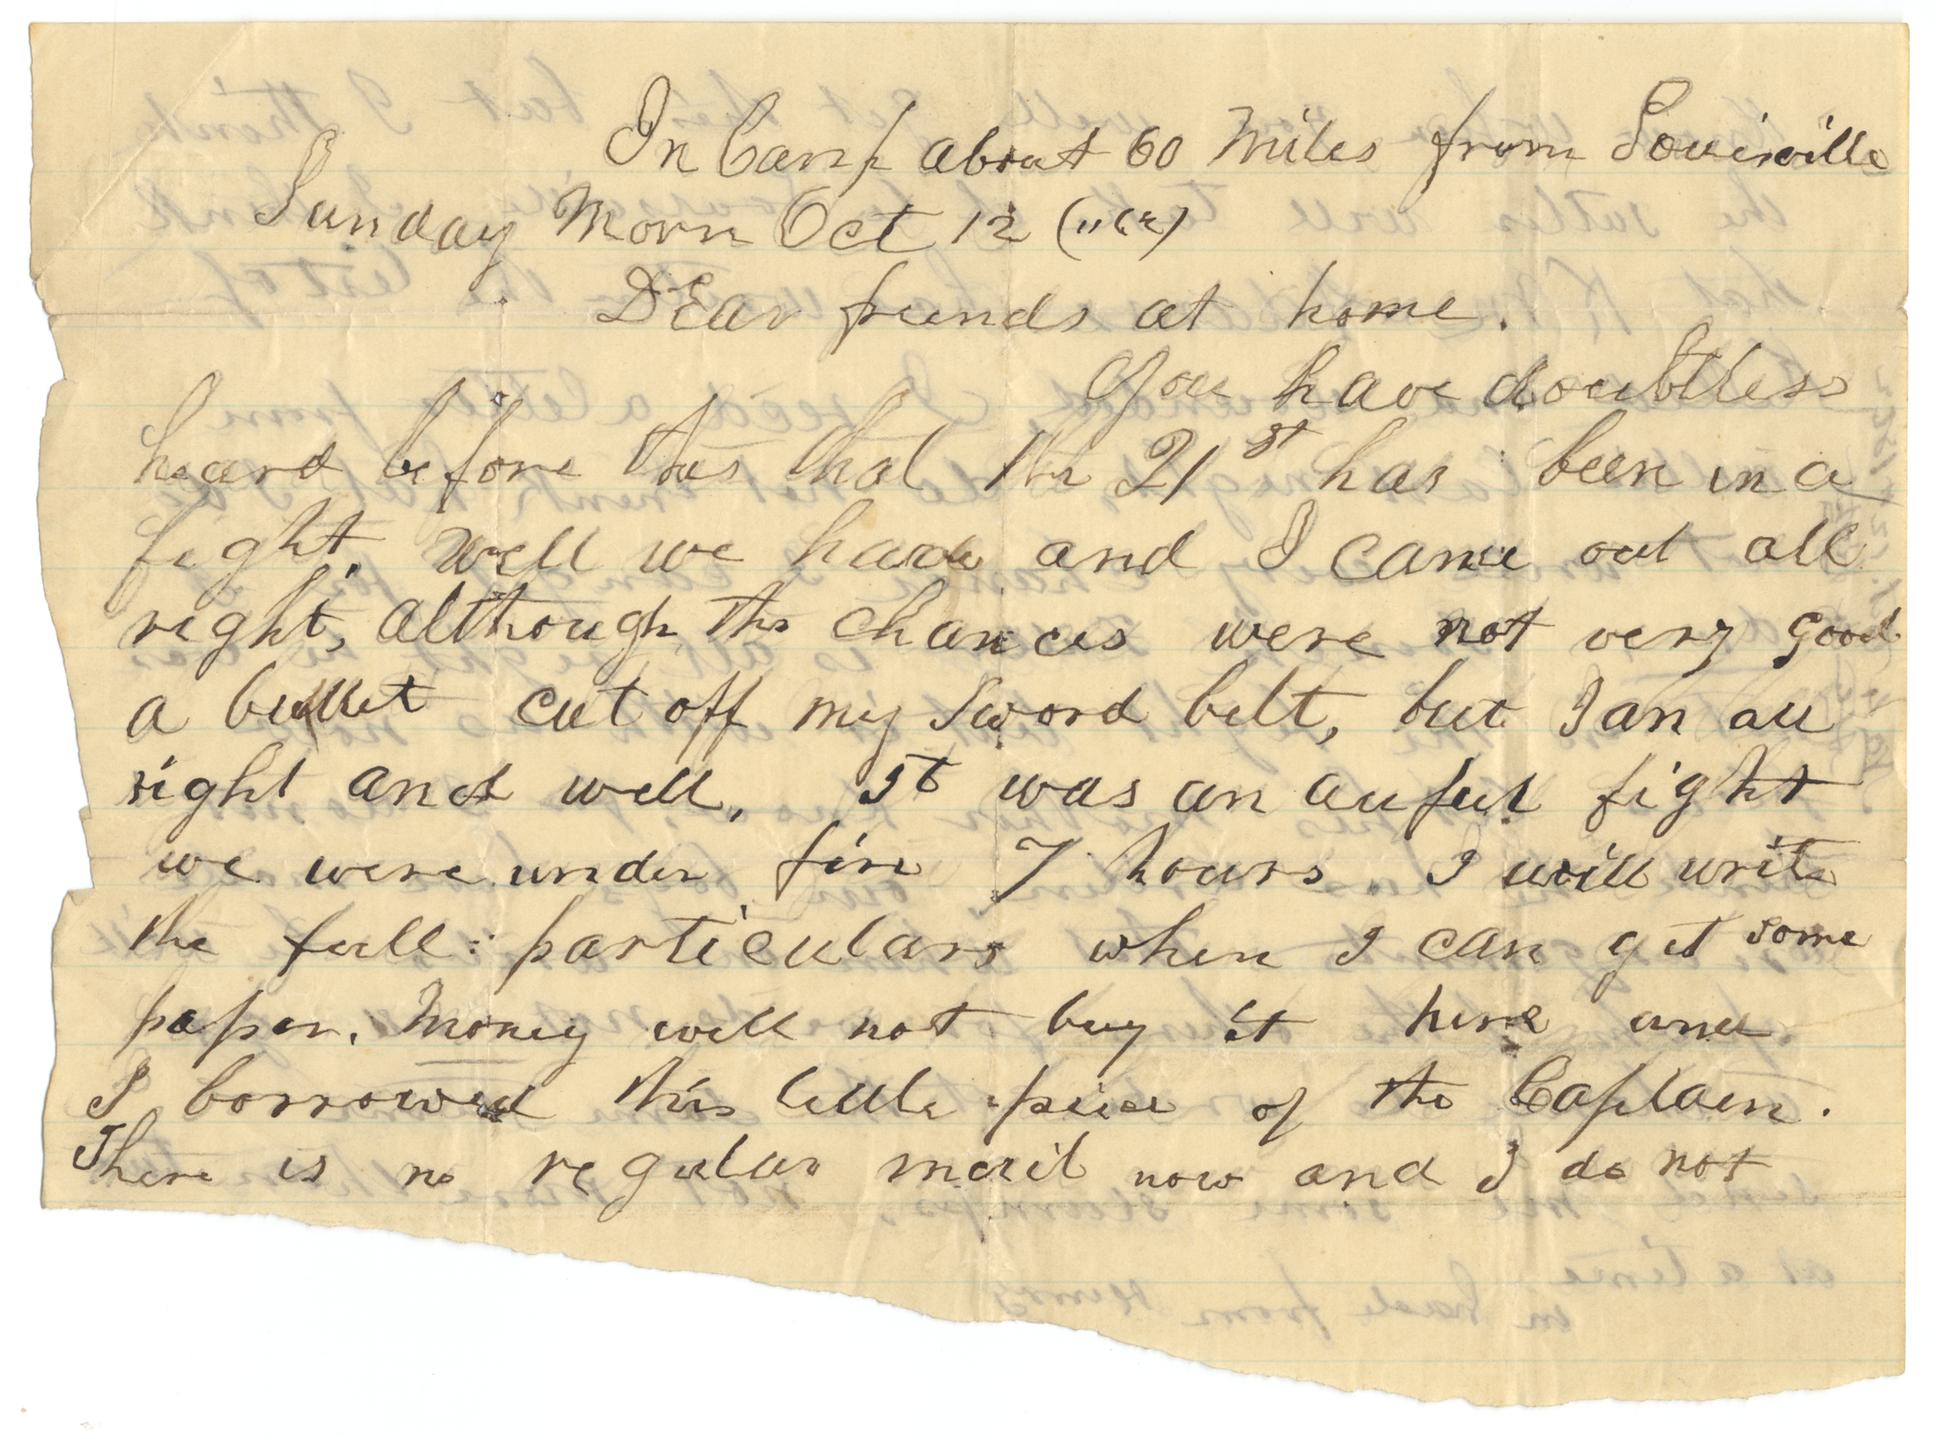 In Camp about 60 Miles from Louisville
Sunday Morn Oct 12 ("62)
DEar friends at home.
You have doubtless
heard before this that the 21st has been in a
fight. Well we have and I came out all
right, although the chances were not very good
a bullet cut off my Sword belt, but I am all
right and well. It was an auful fight
we were under fire 7 hours. I will write
the full particulars when I can get some
paper. Money will not buy it here and
I borrowed this little piece of the Captain.
There is no regular mail now and I do not